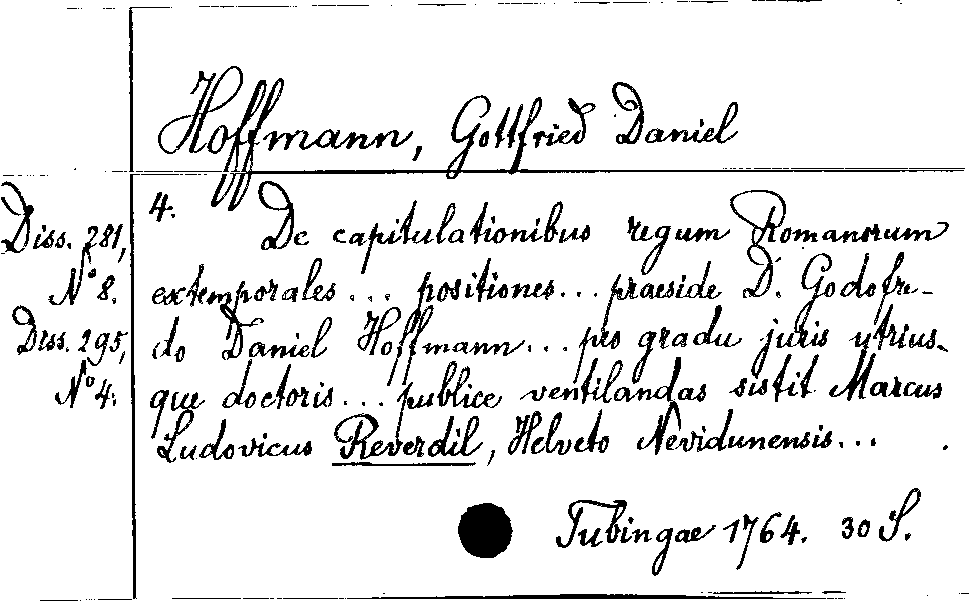 Hoffmann, Gottfried Daniel
Diss. 281,
No 8.
Diss. 295,
No 4.
4. De capitulationibus regum Romanorum
extemporales ... positiones ... praeside D. Godofre-
do Daniel Hoffmann ... pro gradu juris utrius-
que doctoris ... publice ventilandas sistit Marcus
Ludovicus Reverdil, Helveto Nevidunensis ...
Tubingae 1764. 30 S.